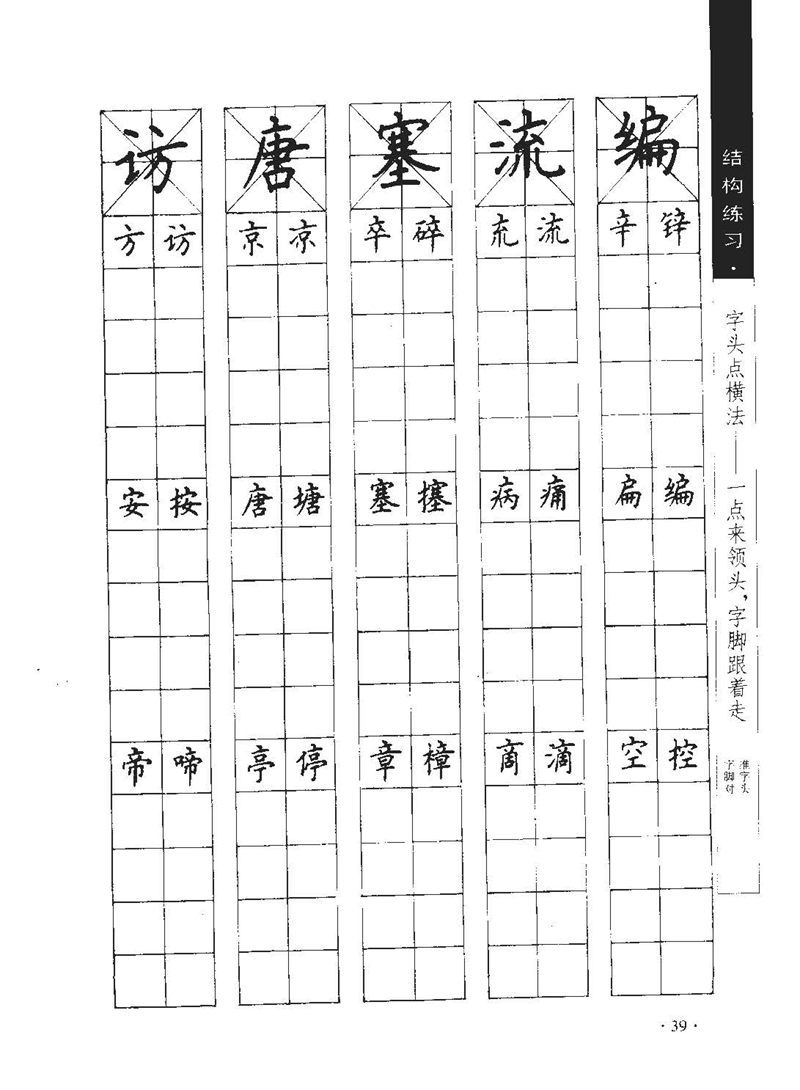 结构练习·
字头点横法——一点来领头，字脚跟着走
字脚对
准字头
访 唐 塞 流 编
方 访 京 凉 卒 碎 㐬 流 辛 锌
安 按 唐 塘 塞 搴 病 痛 扁 编
帝 啼 亭 停 章 樟 啇 滴 空 控
·39·